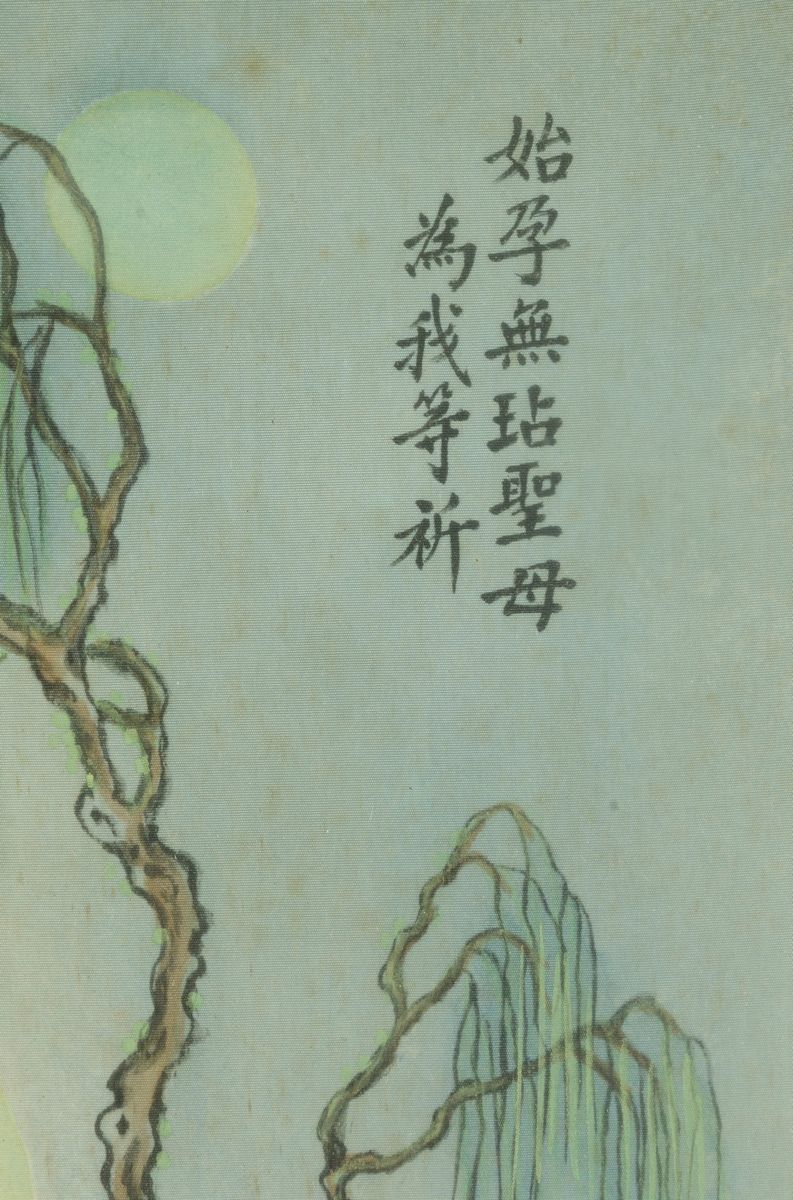 始孕無玷聖母
為我等祈